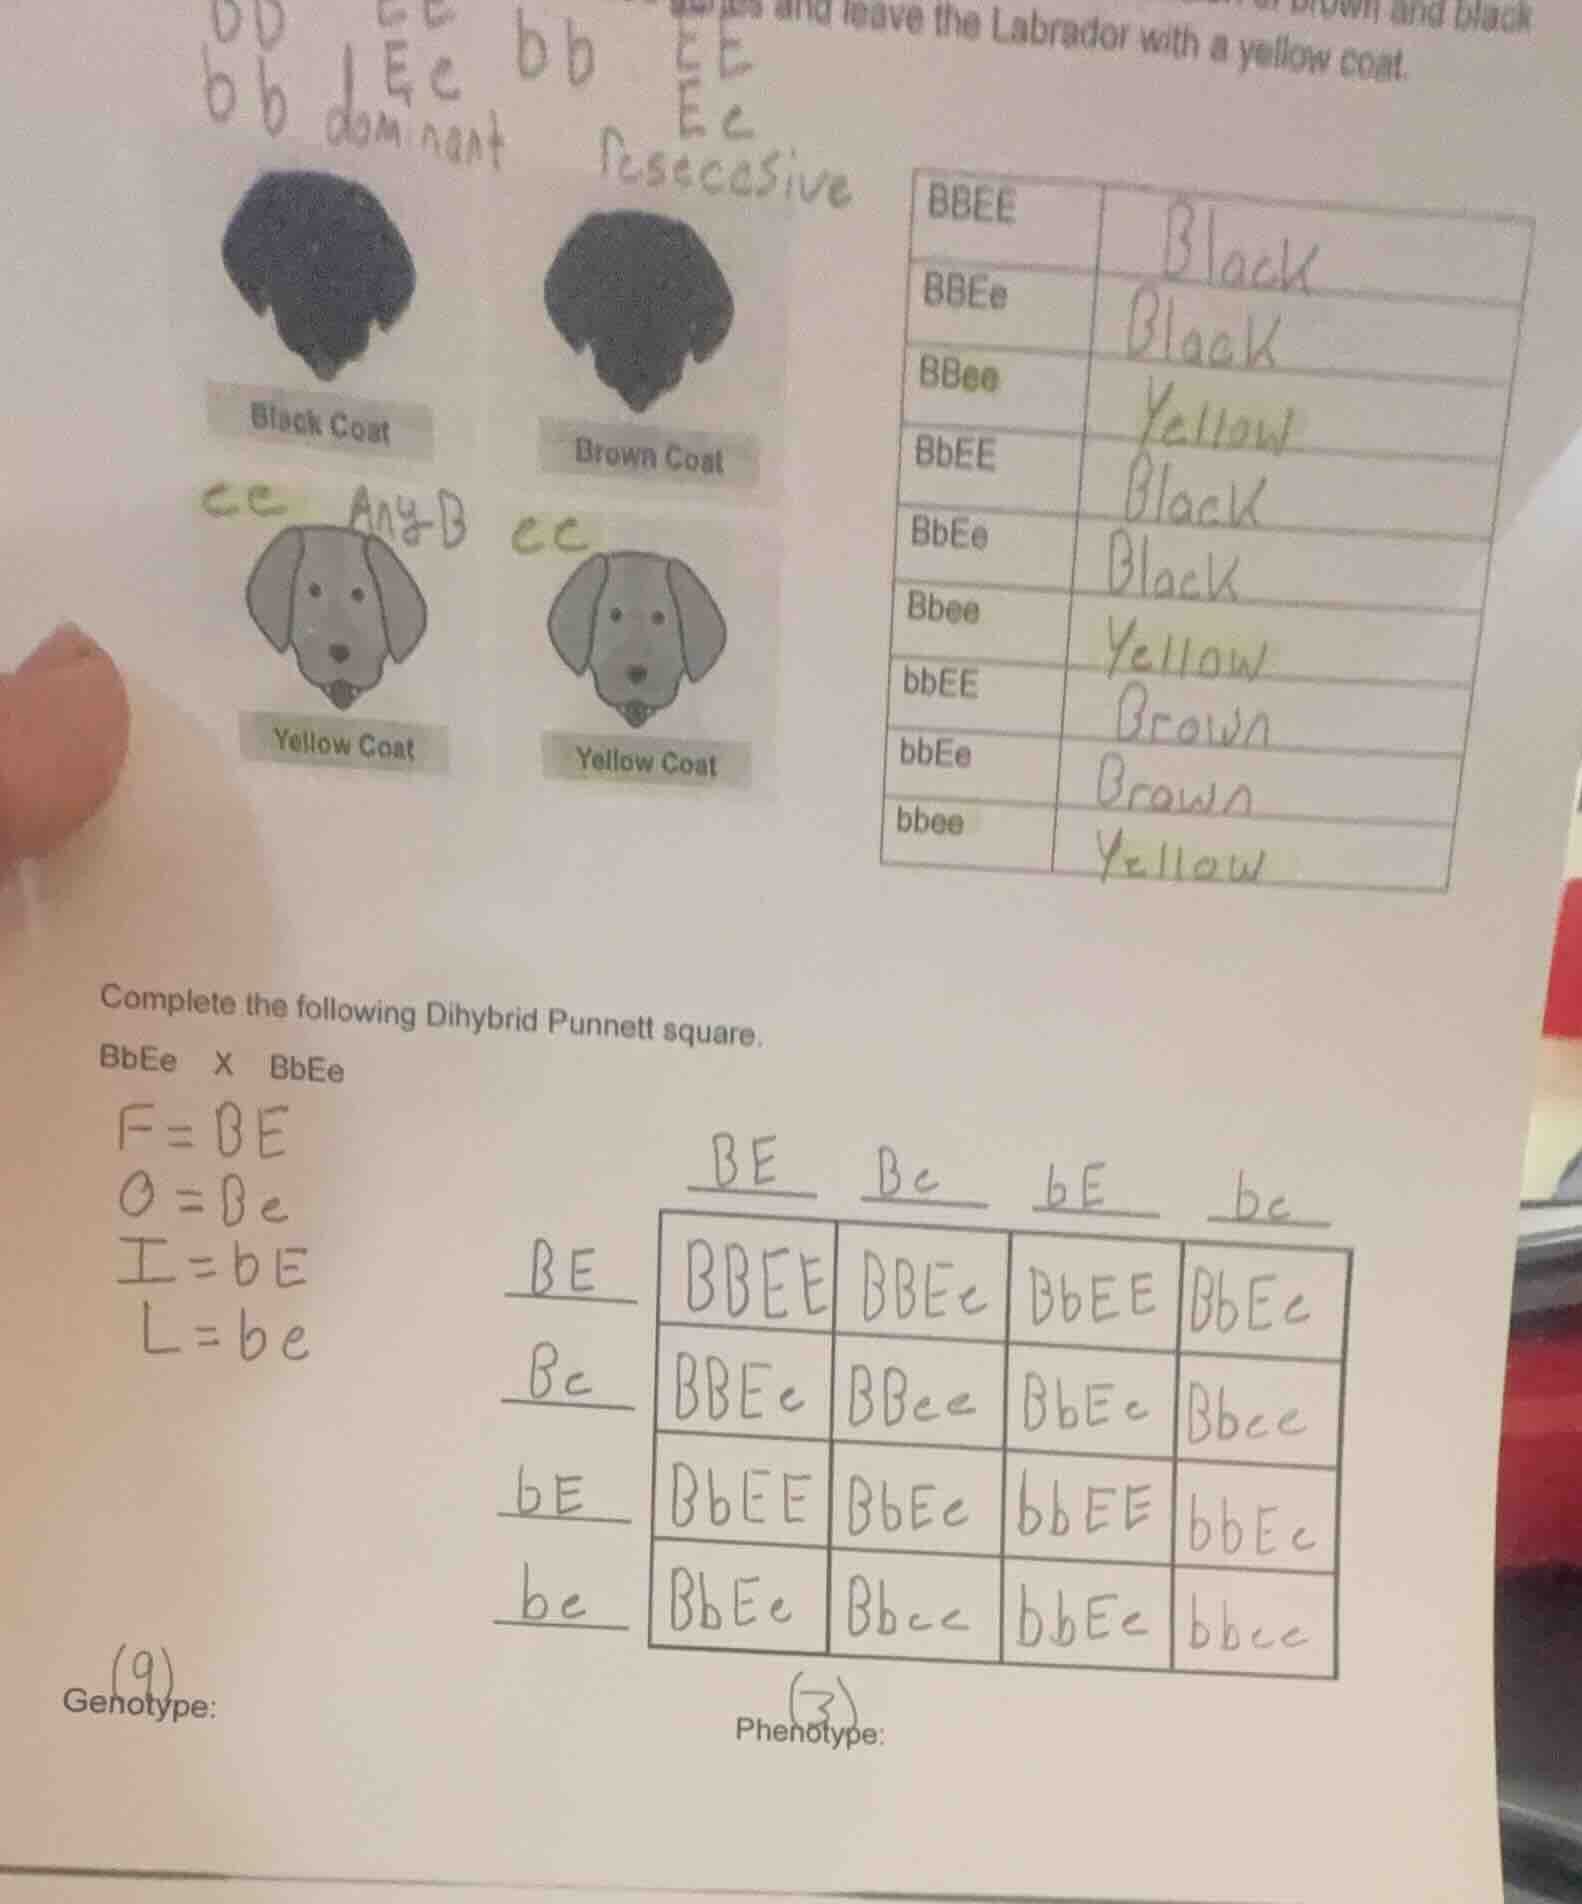 brown and black
and leave the Labrador with a yellow coat.
EE
Ee bb EE
bb dominant Ee
resecasive
Black Coat Brown Coat
ee Any B ee
Yellow Coat Yellow Coat
BBEE Black
BBEe Black
BBee Yellow
BbEE Black
BbEe Black
Bbee Yellow
bbEE Brown
bbEe Brown
bbee Yellow
Complete the following Dihybrid Punnett square.
BbEe X BbEe
F = BE
O = Be
I = bE
L = be
BE Be bE be
BE BBEE BBEe BbEE BbEe
Be BBEe BBee BbEe Bbee
bE BbEE BbEe bbEE bbEe
be BbEe Bbee bbEe bbee
(9)
Genotype:
(3)
Phenotype: